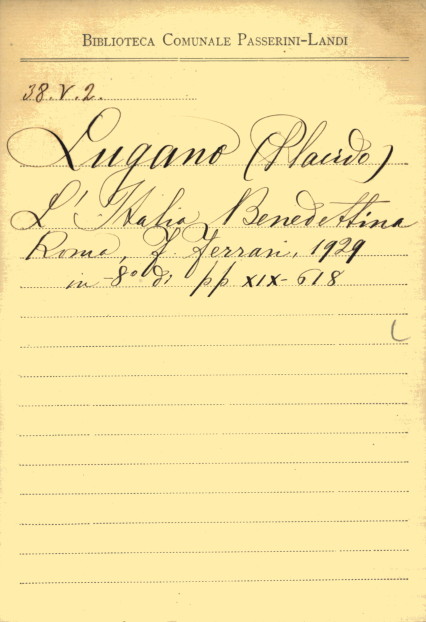 BIBLIOTECA COMUNALE PASSERINI-LANDI
38.V.2.
Lugano (Placido)
L'Italia Benedettina
Roma, F. Ferrari, 1929
in-8° di pp XIX-618
L